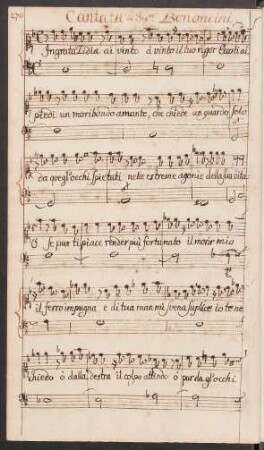 Cantata del Sigr. Bononcini
Ingrata Lidia ai vinto à vinto il tuo rigor Eccoti ai
piedi un moribondo amante, che chiede un guardo solo
da quegl'occhi spietati nelle estreme agonie della sua vita
O se pur ti piace render più fortunato il morir mio
il ferro impugna e di tua man mi svena suplice io te ne
chiedo ò dalla destra il colpo attendo ò pur da gl'occhi